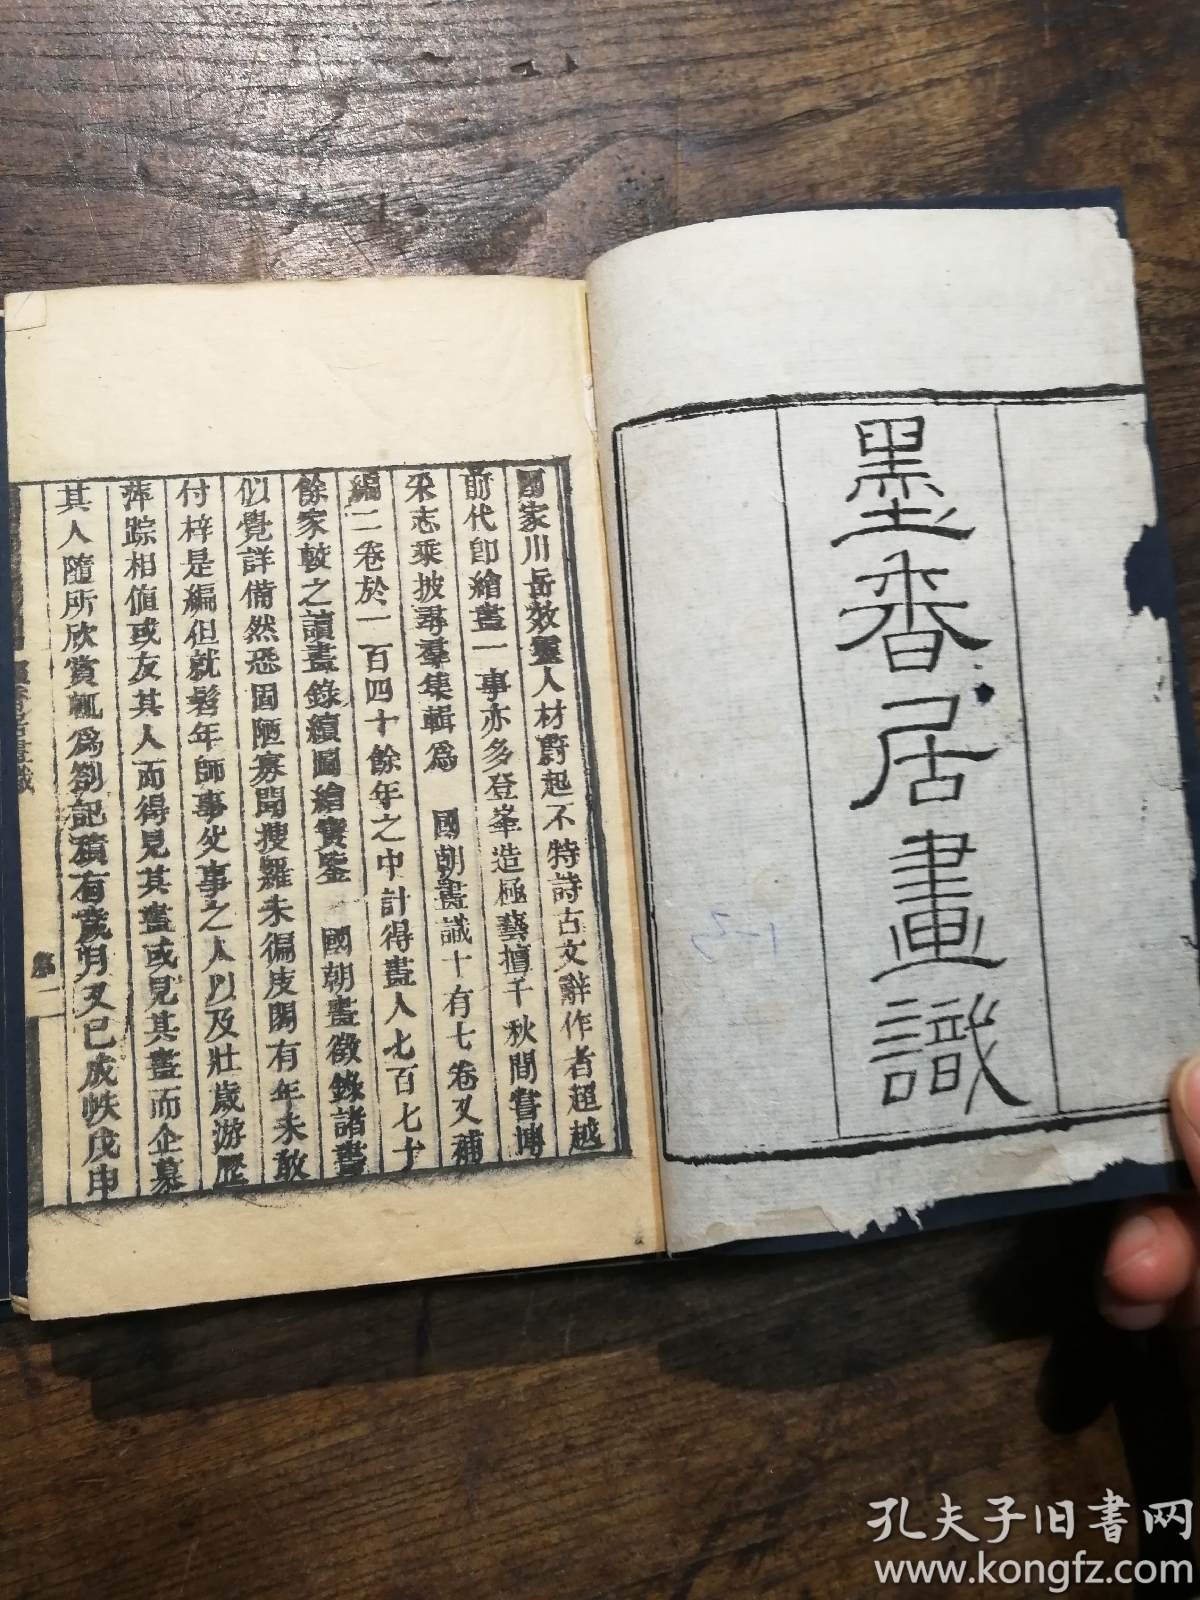 墨香居畫識
國家川岳效靈人材蔚起不特詩古文辭作者超越
前代即繪畫一事亦多登峯造極藝壇千秋間嘗博
采志乘披尋羣集輯為 國朝畫識十有七卷又補
編二卷於一百四十餘年之中計得畫人七百七十
餘家較之讀畫錄續圖繪寶鑒 國朝畫徵錄諸書
似覺詳備然恐固陋寡聞搜羅未徧庋閣有年未敢
付梓是編但就髫年師事父事之人以及壯歲游歷
萍踪相値或友其人而得見其畫或見其畫而企慕
其人隨所欣賞輒為劄記積有歲月又已成帙戊申
香居畫識
一
1-3
孔夫子旧书网
www.kongfz.com